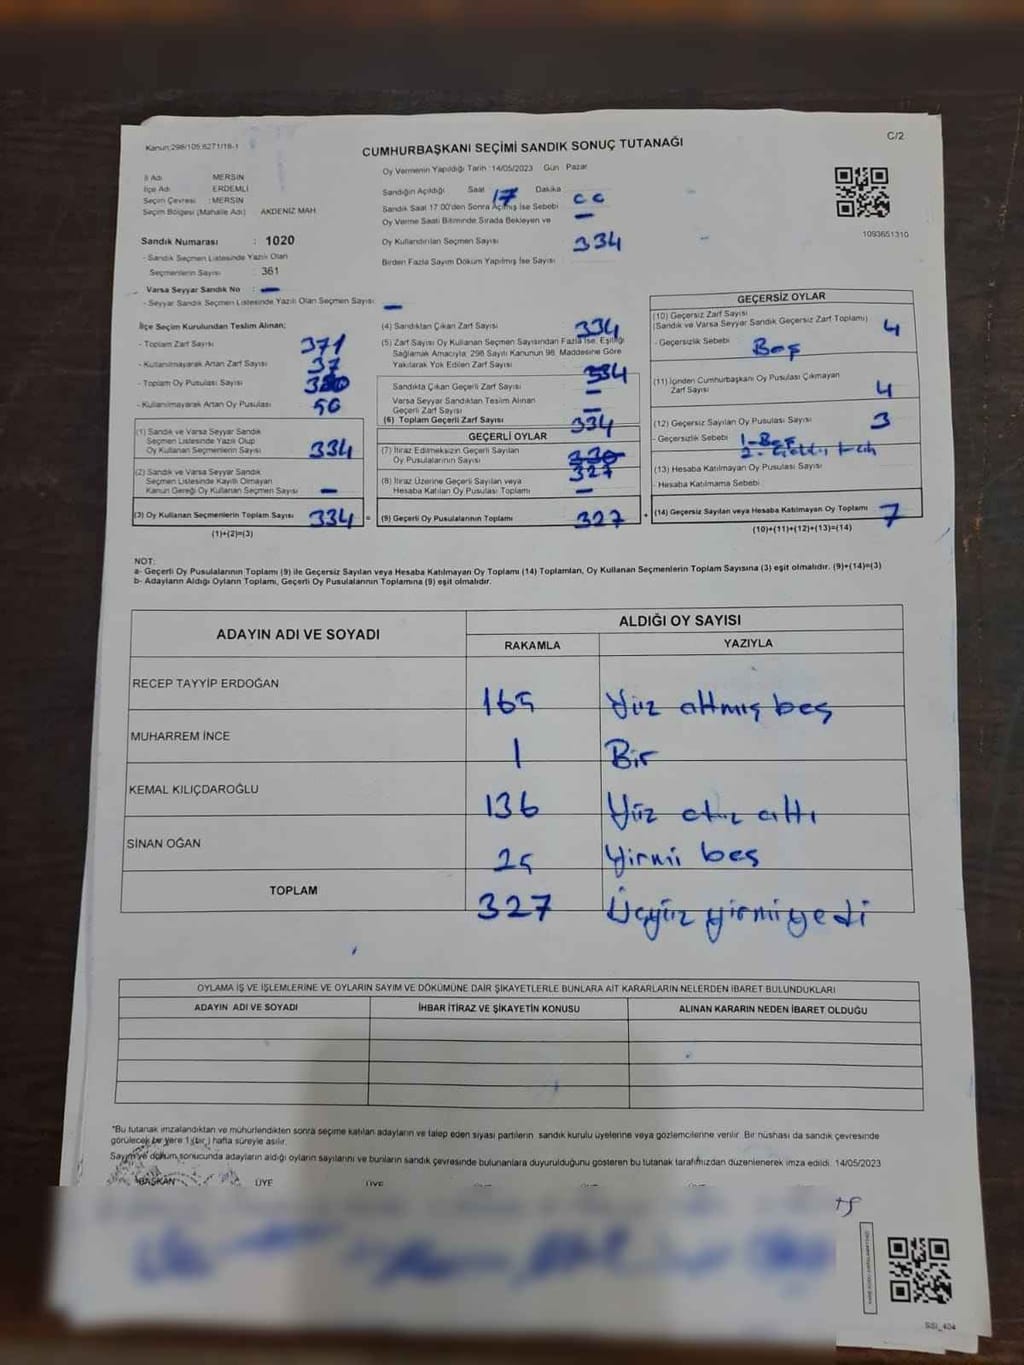 Kanun:298/105;6271/18-1
CUMHURBAŞKANI SEÇİMİ SANDIK SONUÇ TUTANAĞI
C/2
Oy Vermenin Yapıldığı Tarih :14/05/2023 Gün : Pazar
İl Adı : MERSİN
İlçe Adı : ERDEMLİ
Seçim Çevresi : MERSİN
Seçim Bölgesi (Mahalle Adı) : AKDENİZ MAH
Sandığın Açıldığı Saat 17 Dakika
Sandık Saat 17:00'den Sonra Açılmış İse Sebebi
Oy Verme Saati Bitiminde Sırada Bekleyen ve –
Oy Kullandırılan Seçmen Sayısı 334
Birden Fazla Sayım Döküm Yapılmış İse Sayısı
1093651310
Sandık Numarası : 1020
- Sandık Seçmen Listesinde Yazılı Olan
Seçmenlerin Sayısı : 361
Varsa Seyyar Sandık No : –
- Seyyar Sandık Seçmen Listesinde Yazılı Olan Seçmen Sayısı: –
İlçe Seçim Kurulundan Teslim Alınan;
- Toplam Zarf Sayısı 371
- Kullanılmayarak Artan Zarf Sayısı 37
- Toplam Oy Pusulası Sayısı
- Kullanılmayarak Artan Oy Pusulası
(1) Sandık ve Varsa Seyyar Sandık
Seçmen Listesinde Yazılı Olup
Oy Kullanan Seçmenlerin Sayısı 334
(2) Sandık ve Varsa Seyyar Sandık
Seçmen Listesinde Kayıtlı Olmayan
Kanun Gereği Oy Kullanan Seçmen Sayısı –
(3) Oy Kullanan Seçmenlerin Toplam Sayısı 334 =
(1)+(2)=(3)
(4) Sandıktan Çıkan Zarf Sayısı 334
(5) Zarf Sayısı Oy Kullanan Seçmen Sayısından Fazla İse, Eşitliği
Sağlamak Amacıyla; 298 Sayılı Kanunun 98. Maddesine Göre
Yakılarak Yok Edilen Zarf Sayısı
Sandıkta Çıkan Geçerli Zarf Sayısı –
Varsa Seyyar Sandıktan Teslim Alınan
Geçerli Zarf Sayısı –
(6) Toplam Geçerli Zarf Sayısı 334
GEÇERLİ OYLAR
(7) İtiraz Edilmeksizin Geçerli Sayılan
Oy Pusulalarının Sayısı 327
(8) İtiraz Üzerine Geçerli Sayılan veya
Hesaba Katılan Oy Pusulası Toplamı –
(9) Geçerli Oy Pusulalarının Toplamı 327 +
GEÇERSİZ OYLAR
(10) Geçersiz Zarf Sayısı
(Sandık ve Varsa Seyyar Sandık Geçersiz Zarf Toplamı) 4
- Geçersizlik Sebebi Boş
(11) İçinden Cumhurbaşkanı Oy Pusulası Çıkmayan
Zarf Sayısı 4
(12) Geçersiz Sayılan Oy Pusulası Sayısı 3
- Geçersizlik Sebebi 1-Boş
2-
(13) Hesaba Katılmayan Oy Pusulası Sayısı
- Hesaba Katılmama Sebebi
(14) Geçersiz Sayılan veya Hesaba Katılmayan Oy Toplamı 7
(10)+(11)+(12)+(13)=(14)
NOT:
a- Geçerli Oy Pusulalarının Toplamı (9) ile Geçersiz Sayılan veya Hesaba Katılmayan Oy Toplamı (14) Toplamları, Oy Kullanan Seçmenlerin Toplam Sayısına (3) eşit olmalıdır. (9)+(14)=(3)
b- Adayların Aldığı Oyların Toplamı, Geçerli Oy Pusulalarının Toplamına (9) eşit olmalıdır.
ADAYIN ADI VE SOYADI
ALDIĞI OY SAYISI
RAKAMLA YAZIYLA
RECEP TAYYİP ERDOĞAN 165 Yüz altmış beş
MUHARREM İNCE 1 Bir
KEMAL KILIÇDAROĞLU 136 Yüz otuz altı
SİNAN OĞAN 25 Yirmi beş
TOPLAM 327 Üçyüz yirmi yedi
OYLAMA İŞ VE İŞLEMLERİNE VE OYLARIN SAYIM VE DÖKÜMÜNE DAİR ŞİKAYETLERLE BUNLARA AİT KARARLARIN NELERDEN İBARET BULUNDUKLARI
ADAYIN ADI VE SOYADI İHBAR İTİRAZ VE ŞİKAYETİN KONUSU ALINAN KARARIN NEDEN İBARET OLDUĞU
*Bu tutanak imzalandıktan ve mühürlendikten sonra seçime katılan adayların ve talep eden siyasi partilerin sandık kurulu üyelerine veya gözlemcilerine verilir. Bir nüshası da sandık çevresinde
görülecek bir yere 1 (bir) hafta süreyle asılır.
Sayım ve döküm sonucunda adayların aldığı oyların sayılarını ve bunların sandık çevresinde bulunanlara duyurulduğunu gösteren bu tutanak tarafımızdan düzenlenerek imza edildi. 14/05/2023
BAŞKAN ÜYE ÜYE
SSI_404